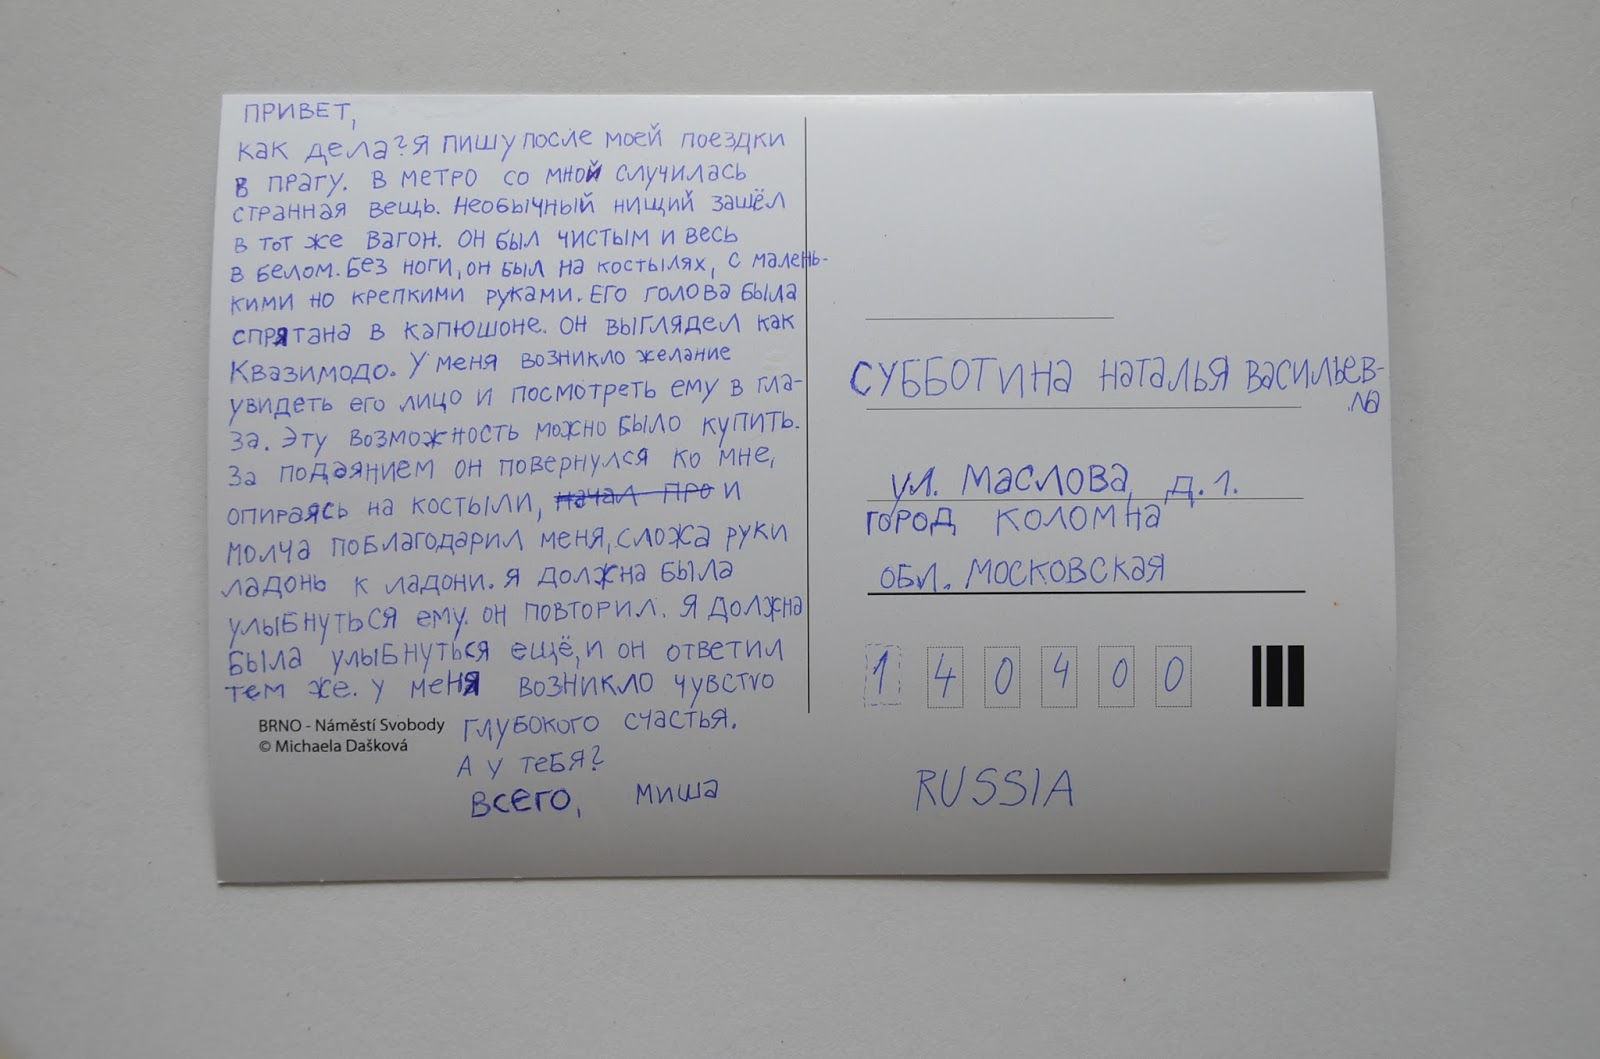 ПРИВЕТ,
как дела? Я пишу после моей поездки
в Прагу. В метро со мной случилась
странная вещь. Необычный нищий зашёл
в тот же вагон. Он был чистым и весь
в белом. Без ноги, он был на костылях, с малень-
кими но крепкими руками. Его голова была
спрятана в капюшоне. Он выглядел как
Квазимодо. У меня возникло желание
увидеть его лицо и посмотреть ему в гла-
за. Эту возможность можно было купить.
За подаянием он повернулся ко мне,
опираясь на костыли, начал про и
молча поблагодарил меня, сложа руки
ладонь к ладони. Я должна была
улыбнуться ему. Он повторил. Я должна
была улыбнуться ещё, и он ответил
тем же. У меня возникло чувство
глубокого счастья.
А у тебя?
Всего, Миша
BRNO - Náměstí Svobody
© Michaela Dašková
СУББОТИНА НАТАЛЬЯ ВАСИЛЬЕВ-
на
ул. МАСЛОВА, д.1.
ГОРОД КОЛОМНА
ОБЛ. МОСКОВСКАЯ
1 4 0 4 0 0
RUSSIA